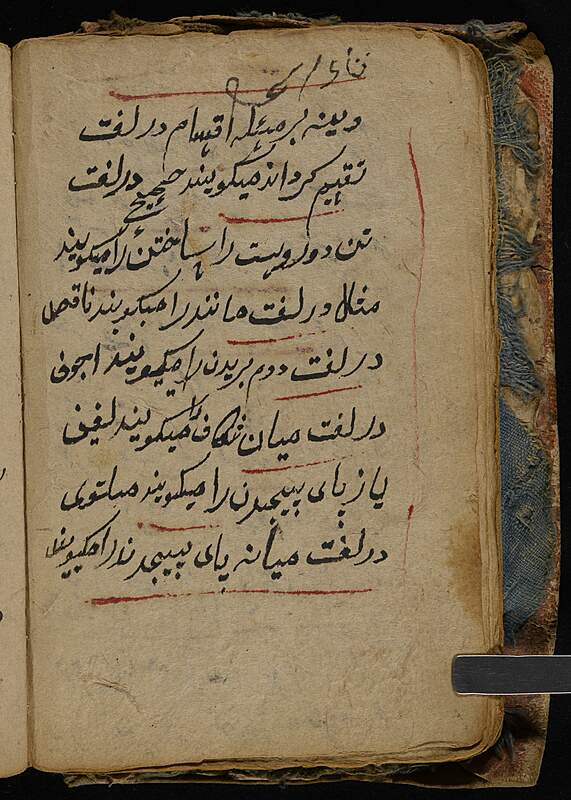 دینه بر مسئله اقسام در لغت
تقیم کرداند میکویند صحیح در لغت
تن درویست را ساختن را میکویند
مثال در لغت مانند را میکویند ناقص
در لغت دوم بریدن را میکویند اجوف
در لغت میان شکاف را میکویند لفیف
پای پیچیدن را میکویند میلتوی
در لغت میانه پای پیچیدن را میکویند